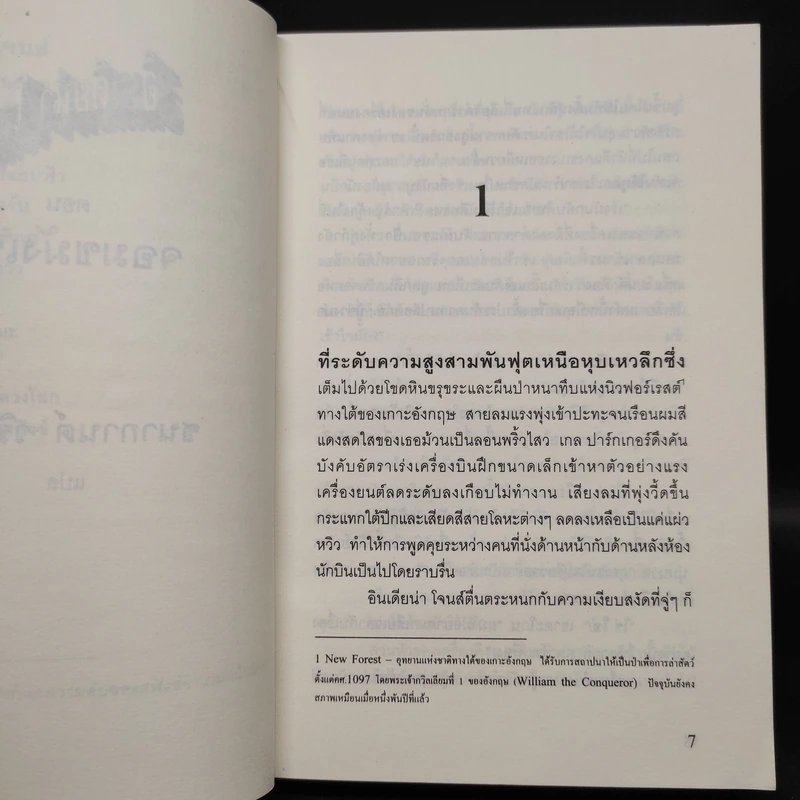 1
ที่ระดับความสูงสามพันฟุตเหนือหุบเหวลึกซึ่ง
เต็มไปด้วยโขดหินขรุขระและผืนป่าหนาทึบแห่งนิวฟอร์เรสต์¹
ทางใต้ของเกาะอังกฤษ สายลมแรงพุ่งเข้าปะทะจนเรือนผมสี
แดงสดใสของเธอม้วนเป็นลอนพริ้วไสว เกล ปาร์กเกอร์ดึงคัน
บังคับอัตราเร่งเครื่องบินฝึกขนาดเล็กเข้าหาตัวอย่างแรง
เครื่องยนต์ลดระดับลงเกือบไม่ทำงาน เสียงลมที่พุ่งวี้ดขึ้น
กระแทกใต้ปีกและเสียดสีสายโลหะต่างๆ ลดลงเหลือเป็นแค่แผ่ว
หวิว ทำให้การพูดคุยระหว่างคนที่นั่งด้านหน้ากับด้านหลังห้อง
นักบินเป็นไปโดยราบรื่น
อินเดียน่า โจนส์ตื่นตระหนกกับความเงียบสงัดที่จู่ๆ ก็
1 New Forest – อุทยานแห่งชาติทางใต้ของเกาะอังกฤษ ได้รับการสถาปนาให้เป็นป่าเพื่อการล่าสัตว์
ตั้งแต่คศ.1097 โดยพระเจ้าวิลเลียมที่ 1 ของอังกฤษ (William the Conqueror) ปัจจุบันยังคง
สภาพเหมือนเมื่อหนึ่งพันปีที่แล้ว
7